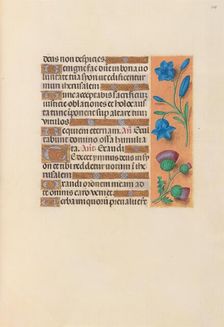 deus non despicies.
Benigne fac domine in bona uo
luntate tua syon ut edificentur
muri iherusalem.
Tunc acceptabis sacrificium
iusticie oblationes et holocaus
ta tunc imponent super altare tuum
uitulos.
Requiem eternam. An. Exul
tabunt domino ossa humilia
ta. An. Exaudi.
Te decet ymnus deus in sy
on et tibi reddetur uotum in ihe
rusalem.
Exaudi orationem meam ad
te omnis caro ueniet.
Uerba iniquorum preualuerunt